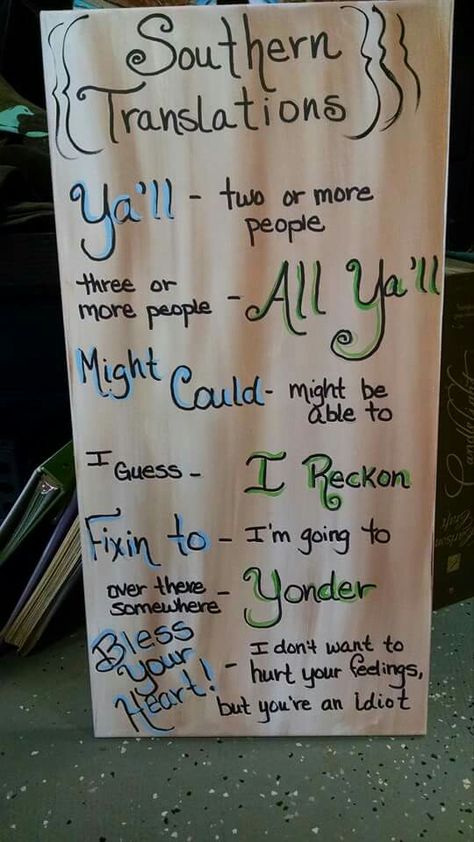 Southern
Translations
Ya'll - two or more
people
three or
more people - All Ya'll
Might Could - might be
able to
I Guess - I Reckon
Fixin to - I'm going to
over there
somewhere - Yonder
Bless
Your
Heart! - I don't want to
hurt your feelings,
but you're an idiot